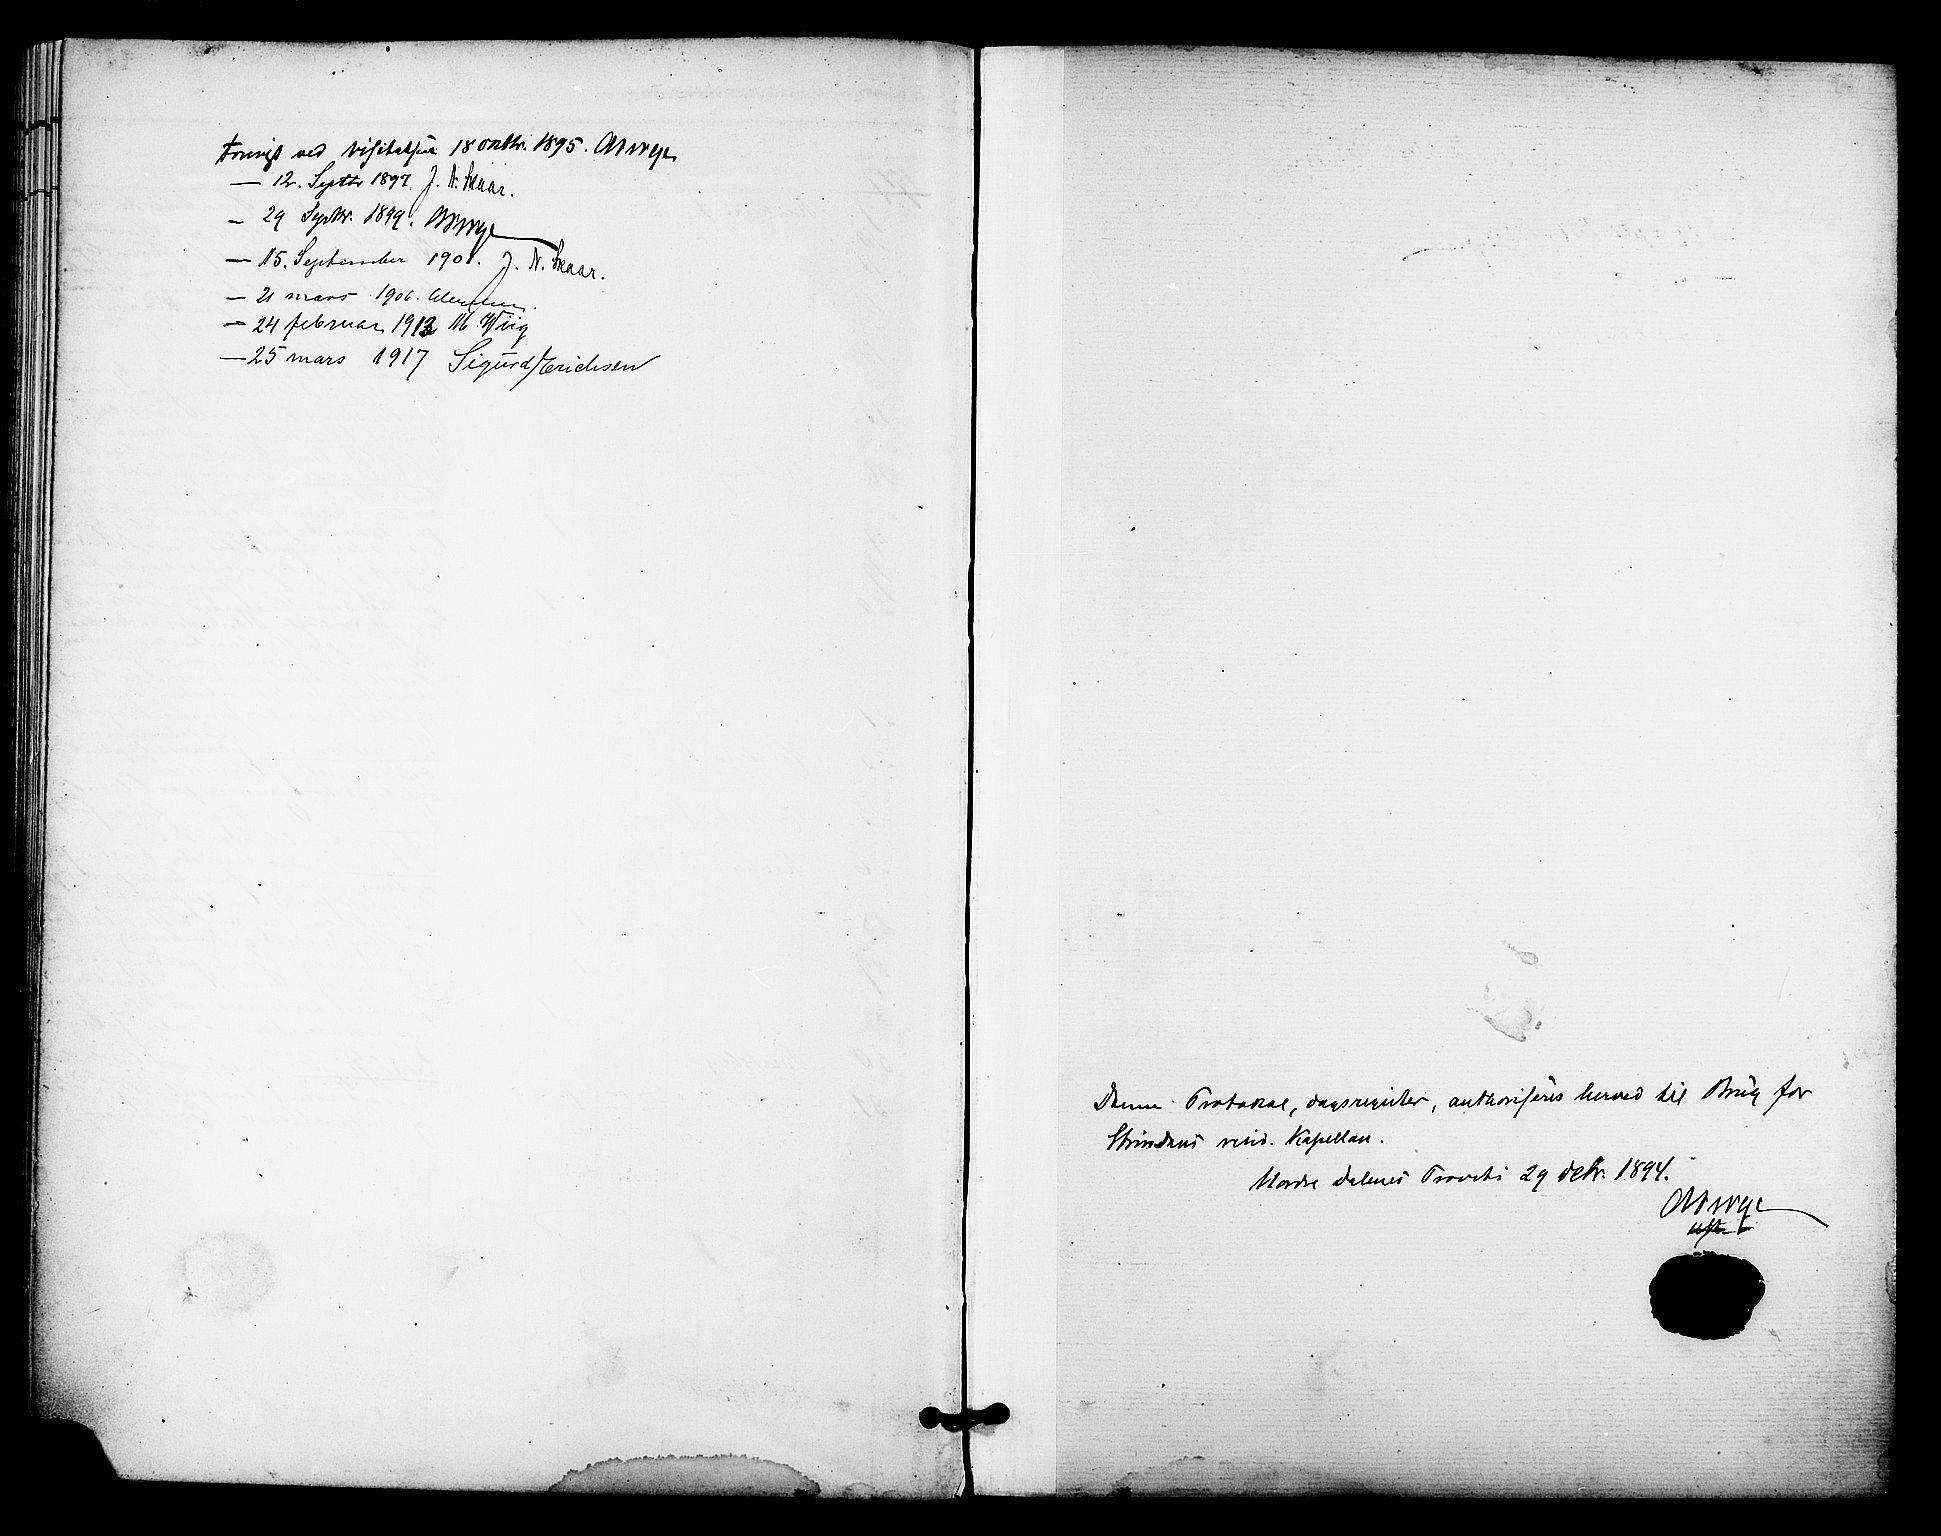 Forevist ved Visitatsen 18 oktbr. 1895.
— 12. Septbr 1897 J. N. Skaar.
— 29 Septbr. 1899.
— 15. September 1901. J. N. Skaar.
— 21 mars 1906.
— 24 februar 1912 M. Wiig
— 25 mars 1917 Sigurd Erichsen
Denne Protokol, dagsregister, authoriseres herved til Brug for
Strindens resid. Kapellan.
Nordre Dalenes Provsti 29 decbr. 1894.